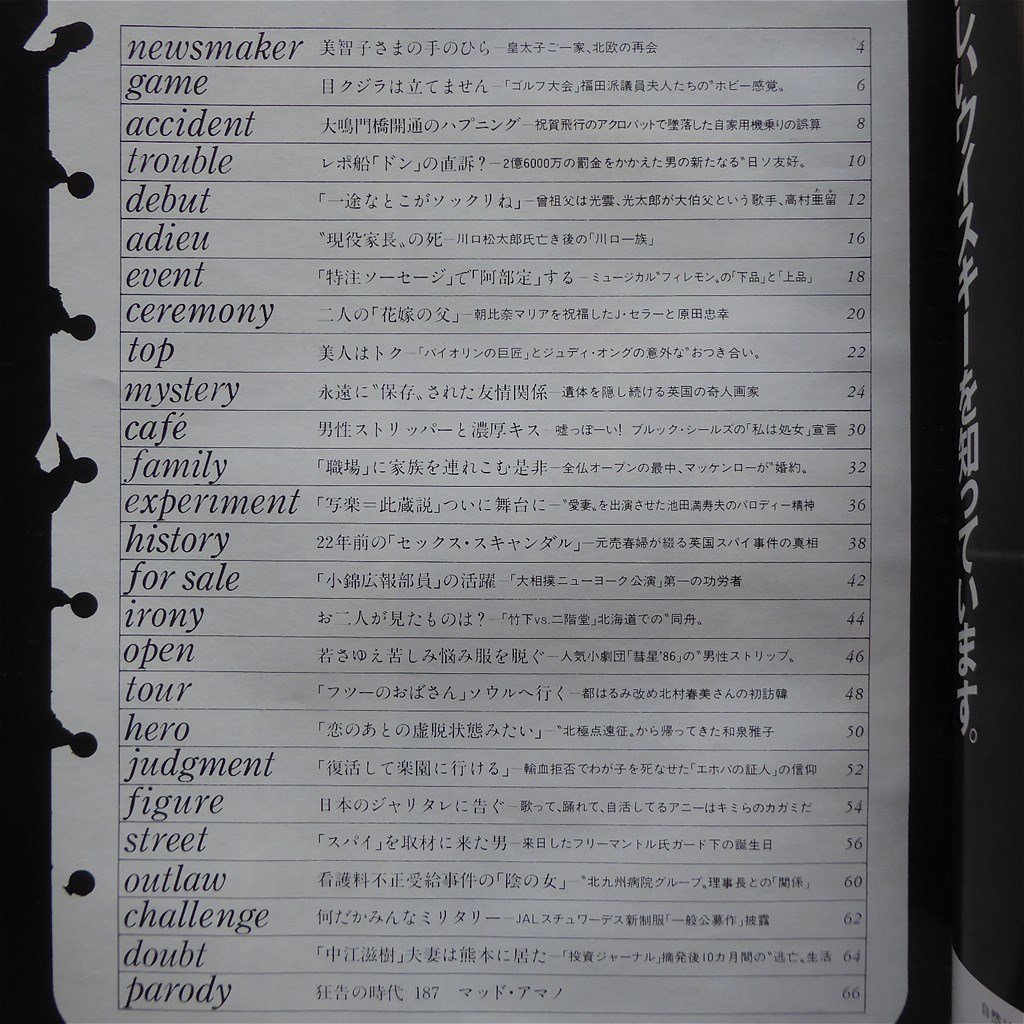 newsmaker 美智子さまの手のひら—皇太子ご一家、北欧の再会 4
game 目クジラは立てません—「ゴルフ大会」福田派議員夫人たちの〝ホビー感覚〟 6
accident 大鳴門橋開通のハプニング—祝賀飛行のアクロバットで墜落した自家用機乗りの誤算 8
trouble レポ船「ドン」の直訴?—2億6000万の罰金をかかえた男の新たなる〝日ソ友好〟 10
debut 「一途なとこがソックリね」—曾祖父は光雲、光太郎が大伯父という歌手、高村亜留 12
adieu 〝現役家長〟の死—川口松太郎氏亡き後の「川口一族」 16
event 「特注ソーセージ」で「阿部定」する—ミュージカル〝フィレモン〟の「下品」と「上品」 18
ceremony 二人の「花嫁の父」—朝比奈マリアを祝福したJ・セラーと原田忠幸 20
top 美人はトク—「バイオリンの巨匠」とジュディ・オングの意外な〝おつき合い〟 22
mystery 永遠に〝保存〟された友情関係—遺体を隠し続ける英国の奇人画家 24
café 男性ストリッパーと濃厚キス—嘘っぽーい! ブルック・シールズの「私は処女」宣言 30
family 「職場」に家族を連れこむ是非—全仏オープンの最中、マッケンローが〝婚約〟 32
experiment 「写楽=此蔵説」ついに舞台に—〝愛妻〟を出演させた池田満寿夫のパロディー精神 36
history 22年前の「セックス・スキャンダル」—元売春婦が綴る英国スパイ事件の真相 38
for sale 「小錦広報部員」の活躍—「大相撲ニューヨーク公演」第一の功労者 42
irony お二人が見たものは?—「竹下vs.二階堂」北海道での〝同舟〟 44
open 若さゆえ苦しみ悩み服を脱ぐ—人気小劇団「彗星'86」の〝男性ストリップ〟 46
tour 「フツーのおばさん」ソウルへ行く—都はるみ改め北村春美さんの初訪韓 48
hero 「恋のあとの虚脱状態みたい」—〝北極点遠征〟から帰ってきた和泉雅子 50
judgment 「復活して楽園に行ける」—輸血拒否でわが子を死なせた「エホバの証人」の信仰 52
figure 日本のジャリタレに告ぐ—歌って、踊れて、自活してるアニーはキミらのカガミだ 54
street 「スパイ」を取材に来た男—来日したフリーマントル氏ガード下の誕生日 56
outlaw 看護料不正受給事件の「陰の女」—〝北九州病院グループ〟理事長との「関係」 60
challenge 何だかみんなミリタリー—JALスチュワーデス新制服「一般公募作」披露 62
doubt 「中江滋樹」夫妻は熊本に居た—「投資ジャーナル」摘発後10カ月間の〝逃亡〟生活 64
parody 狂告の時代 187 マッド・アマノ 66
いいウイスキーを知っています。